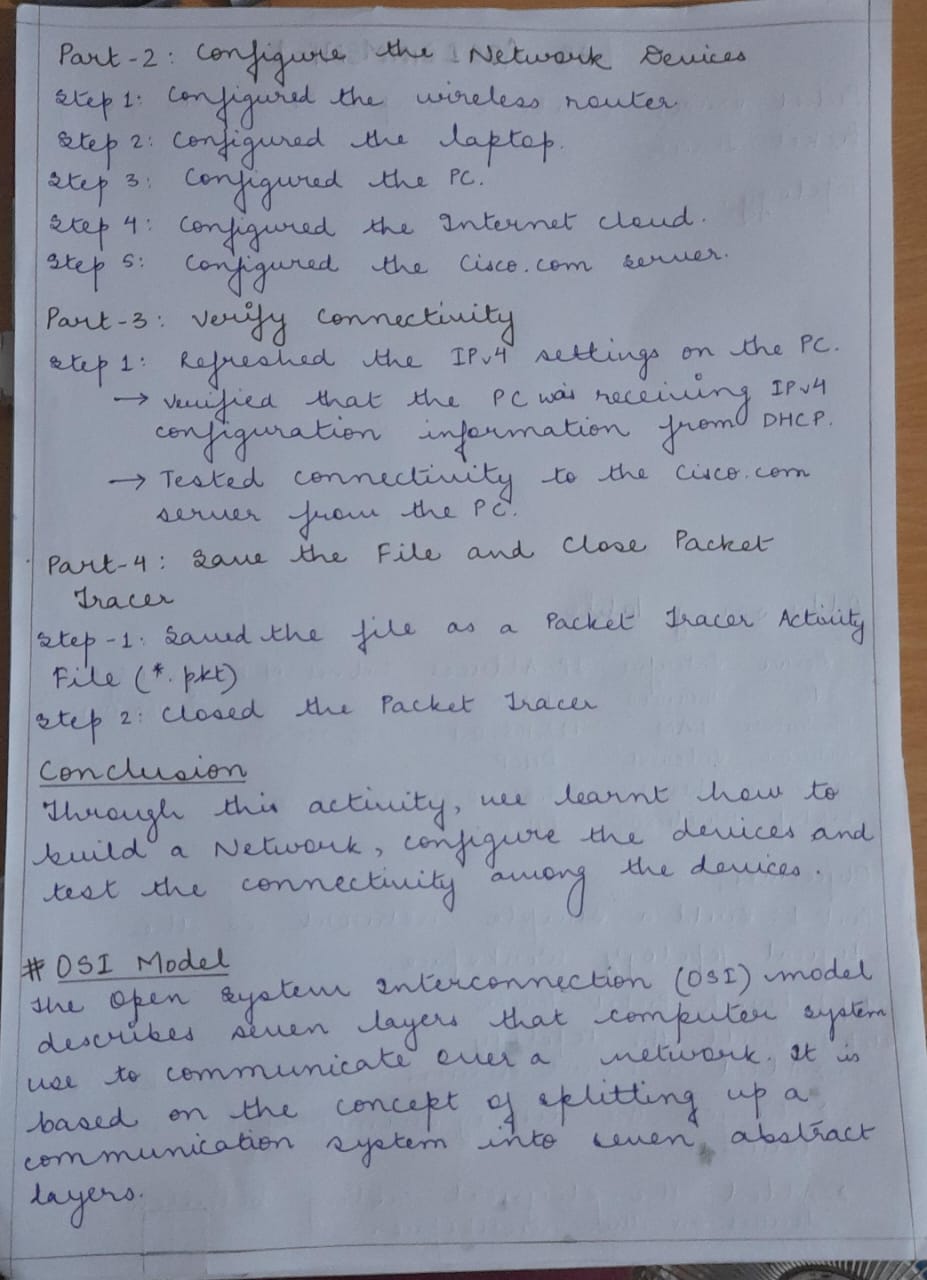 Part-2: Configure the Network Devices
Step 1: Configured the wireless router
Step 2: Configured the laptop.
Step 3: Configured the PC.
Step 4: Configured the Internet cloud.
Step 5: Configured the Cisco.com server.
Part-3: Verify Connectivity
Step 1: Refreshed the IPv4 settings on the PC.
→ Verified that the PC was receiving IPv4
configuration information from DHCP.
→ Tested connectivity to the Cisco.com
server from the PC.
Part-4: Save the File and Close Packet
Tracer
Step-1: Saved the file as a Packet Tracer Activity
File (*.pkt)
Step 2: Closed the Packet Tracer
Conclusion
Through this activity, we learnt how to
build a Network, configure the devices and
test the connectivity among the devices.
# OSI Model
The Open System Interconnection (OSI) model
describes seven layers that computer system
use to communicate over a network. It is
based on the concept of splitting up a
communication system into seven abstract
layers.